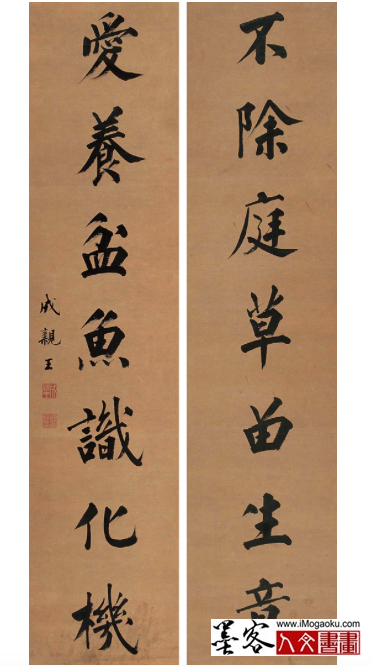 不除庭草留生意
愛養盆魚識化機
成親王
墨客
www.iMogaoku.com
人文書畫